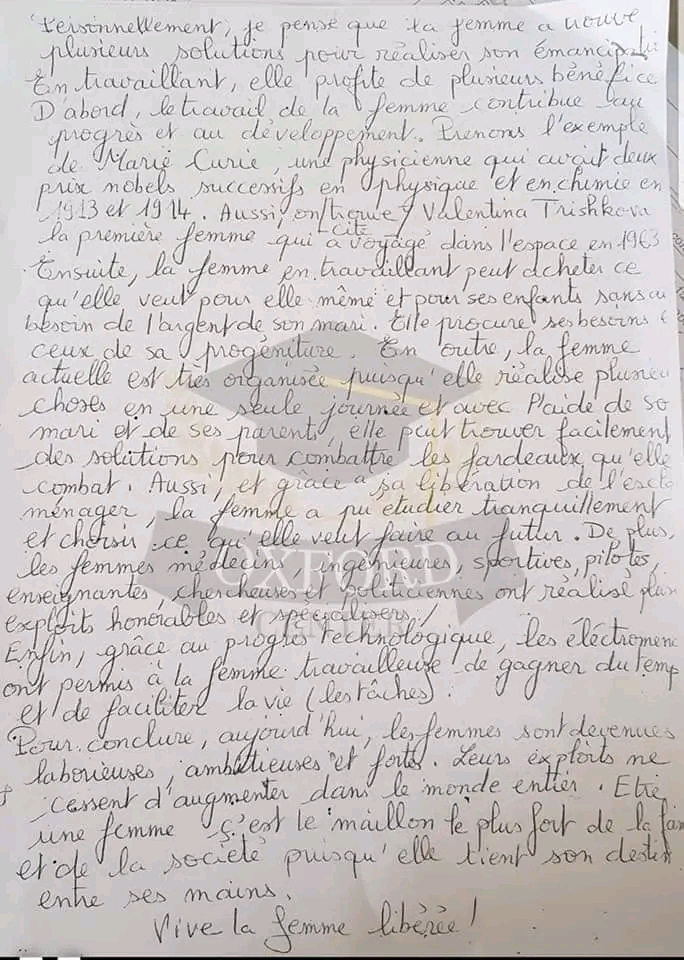 Personnellement, je pense que la femme a trouvé
plusieurs solutions pour réaliser son émancipati
En travaillant, elle profite de plusieurs bénéfice
D'abord, le travail de la femme contribue au
progrès et au développement. Prenons l'exemple
de Marie Curie, une physicienne qui avait deux
prix nobels successifs en physique et en chimie en
1913 et 1914. Aussi, on trouve / Valentina Trishkova
cite
la première femme qui a voyagé dans l'espace en 1963
Ensuite, la femme en travaillant peut acheter ce
qu'elle veut pour elle même et pour ses enfants sans au
besoin de l'argent de son mari. Elle procure ses besoins e
ceux de sa progéniture. En outre, la femme
actuelle est très organisée puisqu'elle réalise plusieu
choses en une seule journée et avec l'aide de so
mari et de ses parents, elle peut trouver facilement
des solutions pour combattre les fardeaux qu'elle
combat. Aussi, et grâce à sa libération de l'escla
ménager, la femme a pu étudier tranquillement
et choisir ce qu'elle veut faire au futur. De plus,
les femmes médecins, ingénieures, sportives, pilotes,
enseignantes, chercheuses et politiciennes ont réalisé plus
exploits honorables et spécialisers /
Enfin, grâce au progrès technologique, les éléctroména
ont permis à la femme travailleuse de gagner du temp
et de faciliter la vie (les tâches).
Pour conclure, aujourd'hui, les femmes sont devenues
laborieuses, ambitieuses et fortes. Leurs exploits ne
cessent d'augmenter dans le monde entier. Etre
une femme c'est le maillon le plus fort de la fam
et de la société puisqu'elle tient son destin
entre ses mains.
Vive la femme libérée !
OXFORD
CENTER